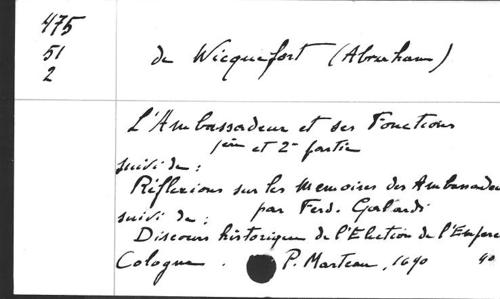 475
51
2
de Wicquefort (Abraham)
L'Ambassadeur et ses Fonctions
1ère et 2e partie
suivi de :
Réflexions sur les Memoires des Ambassadeu
par Ferd. Galardi
suivi de :
Discours historique de l'Election de l'Empere
Cologne . P. Marteau, 1690 40